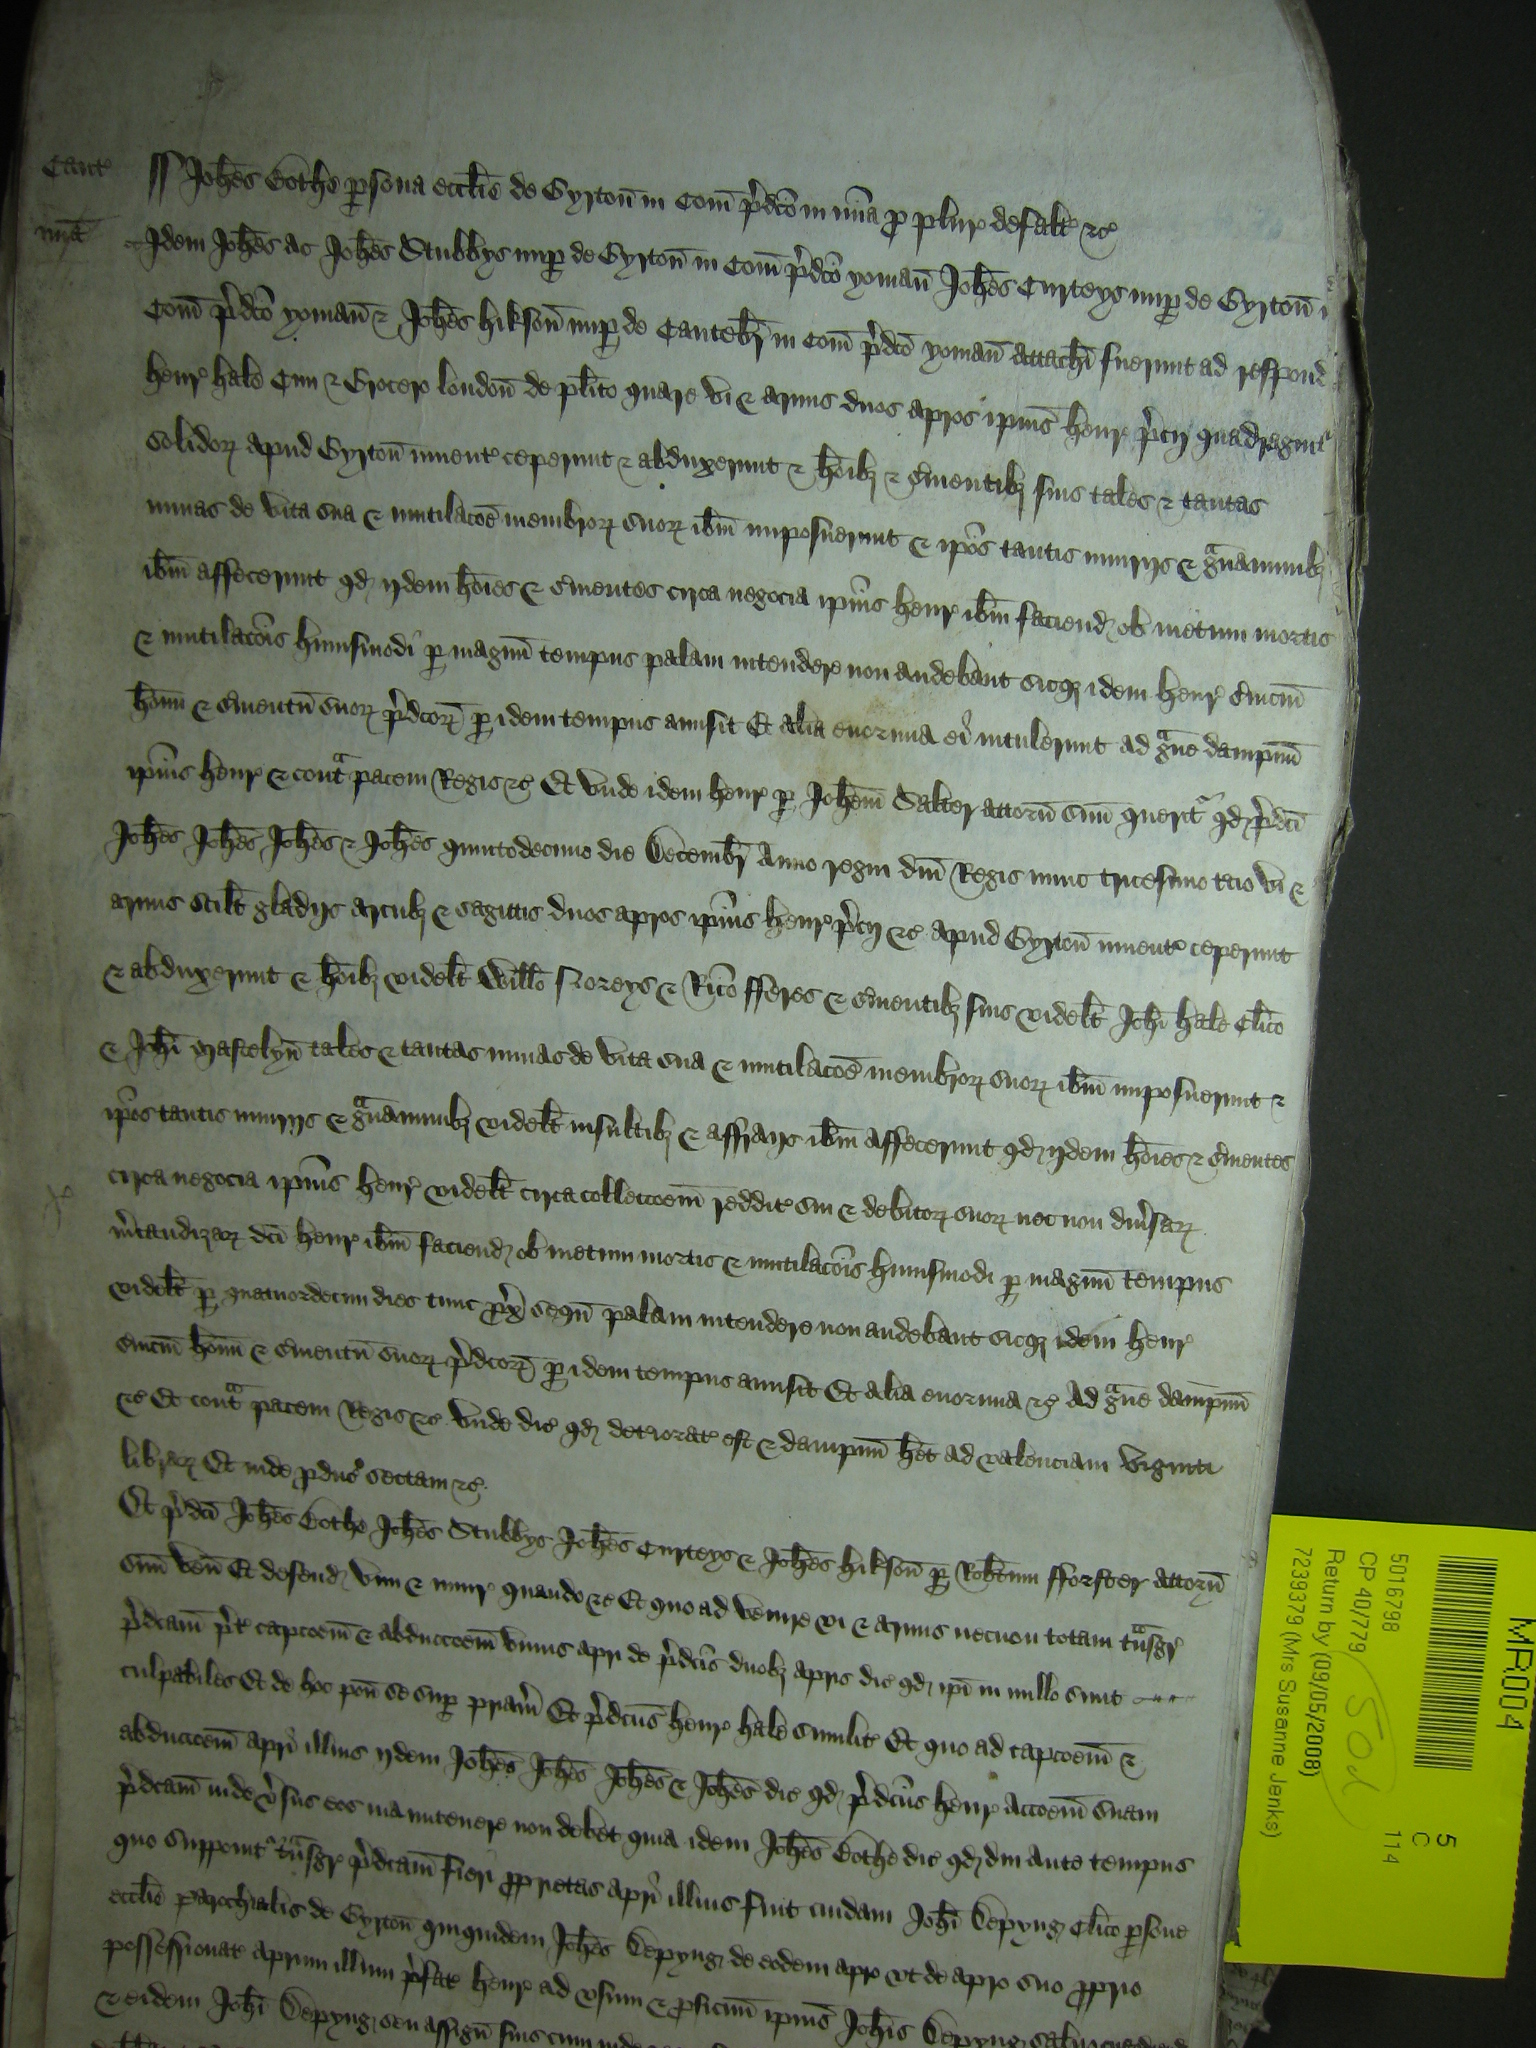 Cant
ss Joħes Bothe ꝑsona eccƚie de Gyrton̄ in Com̄ p̄dco in mīa ꝓ plur defalt ⁊c
mīa
Idem Joħes ac Joħes Stubbys nuꝑ de Gyrton̄ in Com̄ p̄dco yoman̄ Joħes Curteys nuꝑ de Gyrton̄ i
Com̄ p̄dco yoman̄ ⁊ Joħes hikson̄ nuꝑ de Cantebr̄ in Com̄ p̄dco yoman̄ attach̄ fuerunt ad respond
henr hale Ciui ⁊ Grocero london̄ de pƚito quare vi ⁊ armis duos apros ipius henr p̄cij quadragint
solidoꝝ apud Gyrton̄ inuent ceperunt ⁊ abduxerunt ⁊ hōibꝫ ⁊ s̄uientibꝫ suis tales ⁊ tantas
minas de vita sua ⁊ mutilacōe membroꝝ suoꝝ ibm̄ imposuerunt ⁊ ip̄os tantis iniurijs ⁊ gᵃuaminibꝫ
ibm̄ affecerunt qd ijdem hōies ⁊ s̄uientes circa negocia ipius henr ibm̄ faciend ob metum mortis
⁊ mutilacōis huiusmodi ꝑ magnū tempus palam intendere non audebant sicqꝫ idem henr s̄uiciū
hōim ⁊ s̄uientū suoꝝ p̄dcoꝝ ꝑ idem tempus amisit Et alia enormia ei intulerunt ad gᵃue dampnū
ipius henr ⁊ contᵃ pacem Regis ⁊c Et vnde idem henr ꝑ Joħem Salter attorn̄ suū querit qd p̄dci
Joħes Joħes Joħes ⁊ Joħes quintodecimo die Decembr̄ Anno regni dn̄i Regis nunc tricesimo tcio vi ⁊
armis sciƚt gladijs arcubꝫ ⁊ sagittis duos apros ipius henr p̄cij ⁊c apud Gyrton̄ inuent ceperunt
⁊ abduxerunt ⁊ hōibꝫ videƚt Wiƚƚo Noreys ⁊ Ric̄o fferes ⁊ s̄uientibꝫ suis videƚt Joħi hale Cƚico
⁊ Joħi Mastelyn̄ tales ⁊ tantas minas de vita sua ⁊ mutilacōe membroꝝ suoꝝ ibm̄ imposuerunt ⁊
ip̄os tantis iniurijs ⁊ gᵃuaminibꝫ videƚt insultibꝫ ⁊ affraijs ibm̄ affecerunt qd ijdem hōies ⁊ s̄uientes
circa negocia ipius henr videƚt circa colleccōem reddit sui ⁊ debitoꝝ suoꝝ necnon diūsaꝝ
m̄candizaꝝ dci henr ibm̄ faciend ob metum mortis ⁊ mutilacōis huiusmodi ꝑ magnū tempus
videƚt ꝑ quatuordecim dies tunc ꝓx̄ sequn̄ palam intendere non audebant sicqꝫ idem henr
s̄uiciū hōim ⁊ s̄uientū suoꝝ p̄dcoꝝ ꝑ idem tempus amisit Et alia enormia ⁊c Ad gᵃue dampnū
⁊c Et contᵃ pacem Regis ⁊c vnde dic qd deteriorat est ⁊ dampnū het ad valenciam viginti
libraꝝ Et inde ꝓduc sectam ⁊c
Et p̄dci Joħes Bothe Joħes Stubbys Joħes Curteys ⁊ Joħes hikson̄ ꝑ Robtum fforster attorn̄
suū ven̄ Et defend vim ⁊ iniur quando ⁊c Et quo ad venire vi ⁊ armis necnon totam tᵃnsgr̄
p̄dcam p̄t capcōem ⁊ abduccōem vnius apri de p̄dcis duobꝫ apris dic qd ip̄i in nullo sunt
culpabiles Et de hoc pon̄ se sup̄ pr̄iam Et p̄dcus henr hale similit Et quo ad capcōem ⁊
abduccōem apri illius ijdem Joħes Joħes Joħes ⁊ Joħes dic qd p̄dcus henr accōem suam
p̄dcam inde v̄sus eos manutenere non debet quia idem Joħes Bothe dic qd diu ante tempus
quo supponit tᵃnsgr̄ p̄dcam fieri ꝓprietas apri illius fuit cuidam Joħi Depyng Cƚico ꝑsone
eccƚie parochialis de Gyrton̄ quiquidem Joħes Depyng de eodem apro vt de apro suo ꝓprio
possessionat aprum illum p̄fat henr ad vsum ⁊ ꝓficuū ipius Joħis Depyng saluo custodiend
⁊ eidem Joħi Depyng seu assign̄ suis cum inde
MR004
5016798
CP 40/779
Return by (09/05/2008)
7239379 (Mrs Susanne Jenks)
5
C
114
50d